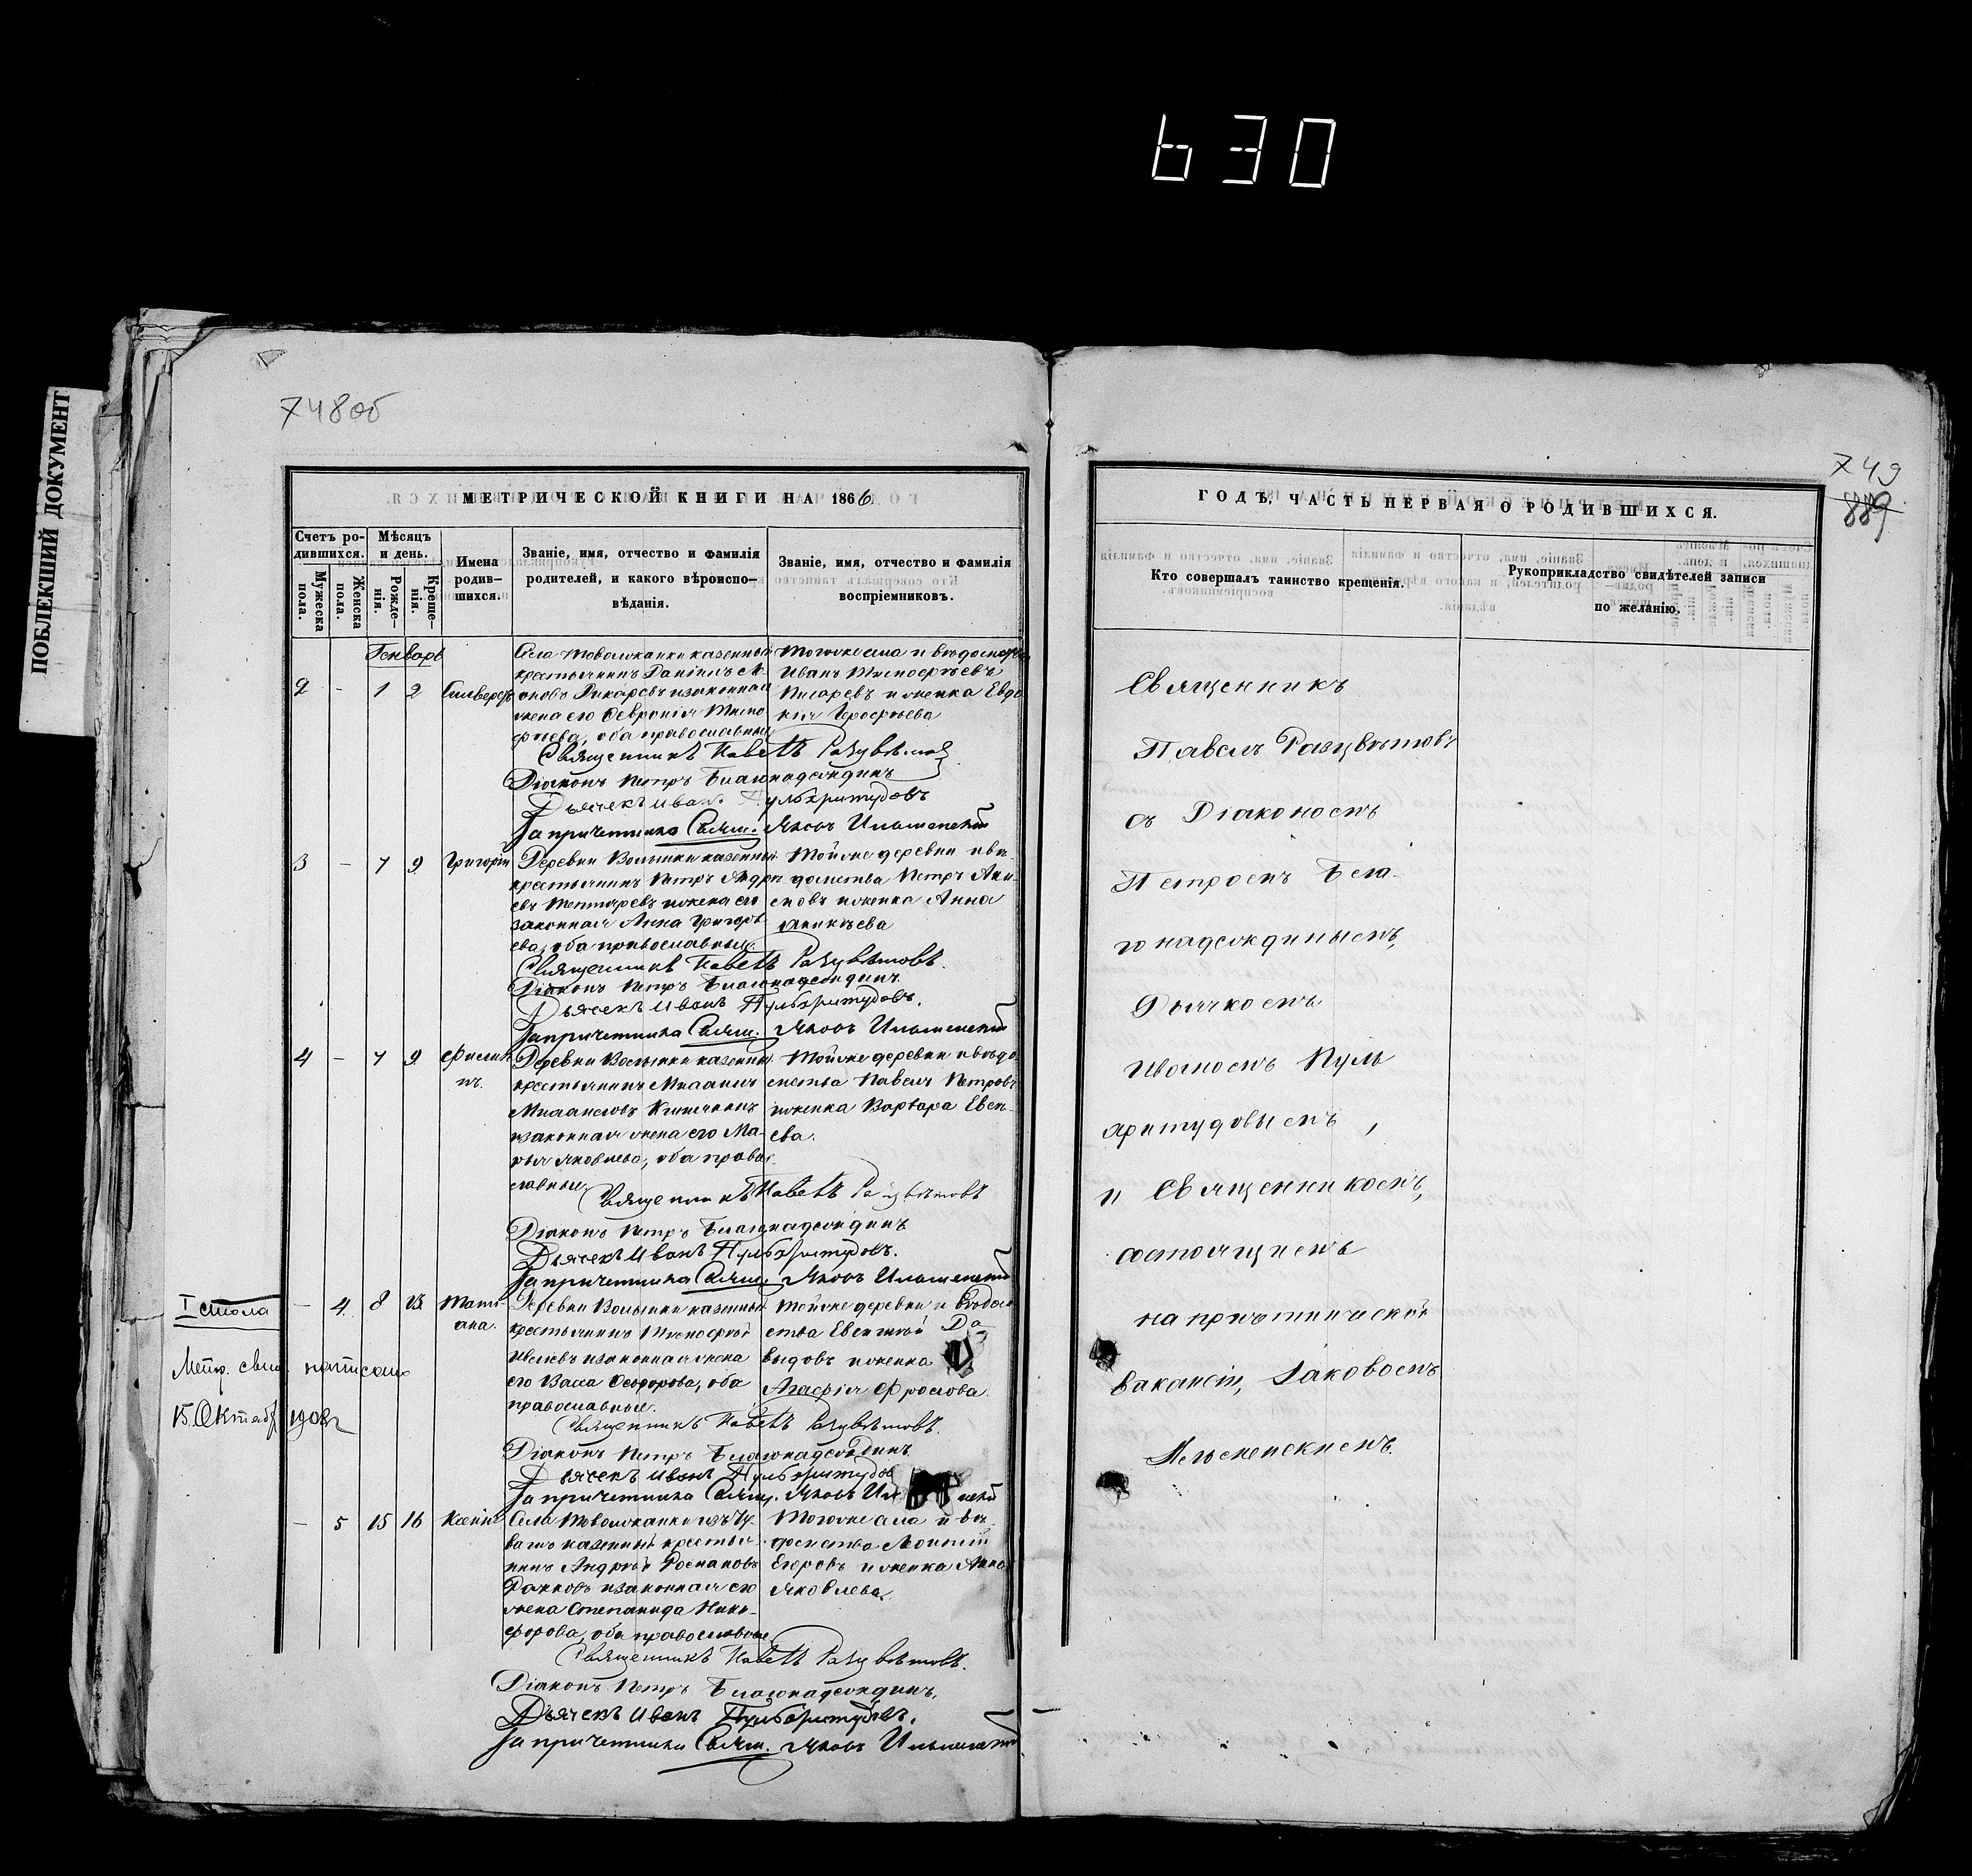 630
ПОБЛЕКШИЙ ДОКУМЕНТ
748об
МЕТРИЧЕСКОЙ КНИГИ НА 1866
Счетъ ро-
дившихся.
Мужеска
пола.
Женска
пола.
Мѣсяцъ
и день.
Рожде-
нія.
Креще-
нія.
Имена
родив-
шихся.
Званіе, имя, отчество и фамилія
родителей, и какого вѣроиспо-
вѣданія.
Званіе, имя, отчество и фамилія
воспріемниковъ.
Генварь
2 - 1 2 Сильверстъ
крестьянинъ Даніилъ
жена его Февронія Тимо
фиева, оба православные
Иванъ Тимофѣевъ
Писаревъ и женка Евдо
кія Ерофѣева
Священникъ Павелъ Разцвѣтовъ
Діаконъ Петръ Благонадеждинъ
Дьячекъ Иванъ Пульхритудовъ
За причетника Свящ. Яковъ Ильменскій
3 - 7 9 Григорій
Деревни Волынки казенный
крестьянинъ Петръ Андре
евъ и жена его
законная Анна Григорь
ева, оба православные.
Тойже деревни и вѣ
домства Петръ Аки
мовъ и женка Анна
Аникіева
Священникъ Павелъ Разцвѣтовъ.
Діаконъ Петръ Благонадеждинъ.
Дьячекъ Иванъ Пульхритудовъ.
За причетника Свящ. Яковъ Ильменскій
4 - 7 9 Филип
пъ.
Деревни Волынки казенный
крестьянинъ
и законная жена его Ма-
рья Яковлева, оба право
славные
Тойже деревни и вѣдо
мства Павелъ Петровъ
и женка Варвара Евсе-
ева.
Священникъ Павелъ Разцвѣтовъ
Діаконъ Петръ Благонадеждинъ
Дьячекъ Иванъ Пульхритудовъ.
За причетника Свящ. Яковъ Ильменскій
I стола
Метр. свид. написано
15. Октяб 1908г
- 4. 8 13. Тати-
ана.
Деревни Волынки казенный
крестьянинъ Тимофѣй
и законная жена
его Васса Феодорова, оба
православные.
Тойже деревни и вѣдом
ства Евсигній Да
выдовъ и женка
Агафія Фролова.
Священникъ Павелъ Разцвѣтовъ.
Діаконъ Петръ Благонадеждинъ
Дьячекъ Иванъ Пульхритудов
За причетника Свящ. Яковъ
- 5 15 16 Ксенія
Села изъ Чу-
вашъ казенный крестья-
нинъ Андрей Романовъ
и законная его
жена Степанида Ники-
форова, оба православные
Тогоже села и вѣ-
домства
Егоровъ и женка Анна
Яковлева.
Священникъ Павелъ Разцвѣтовъ.
Діаконъ Петръ Благонадеждинъ.
Дьячекъ Иванъ Пульхритудовъ.
За причетника Свящ. Яковъ Ильменскій
749
889
ГОДЪ, ЧАСТЬ ПЕРВАЯ О РОДИВШИХСЯ.
Кто совершалъ таинство крещенія.
Рукоприкладство свидѣтелей записи
по желанію.
Священникъ
Павелъ Разцвѣтовъ
съ Діакономъ
Петромъ Бла-
гонадеждинымъ,
Дьячкомъ
Иваномъ Пуль
хритудовымъ,
и Священникомъ,
состоящимъ
на причетнической
вакансіи, Іаковомъ
Ильменскимъ.